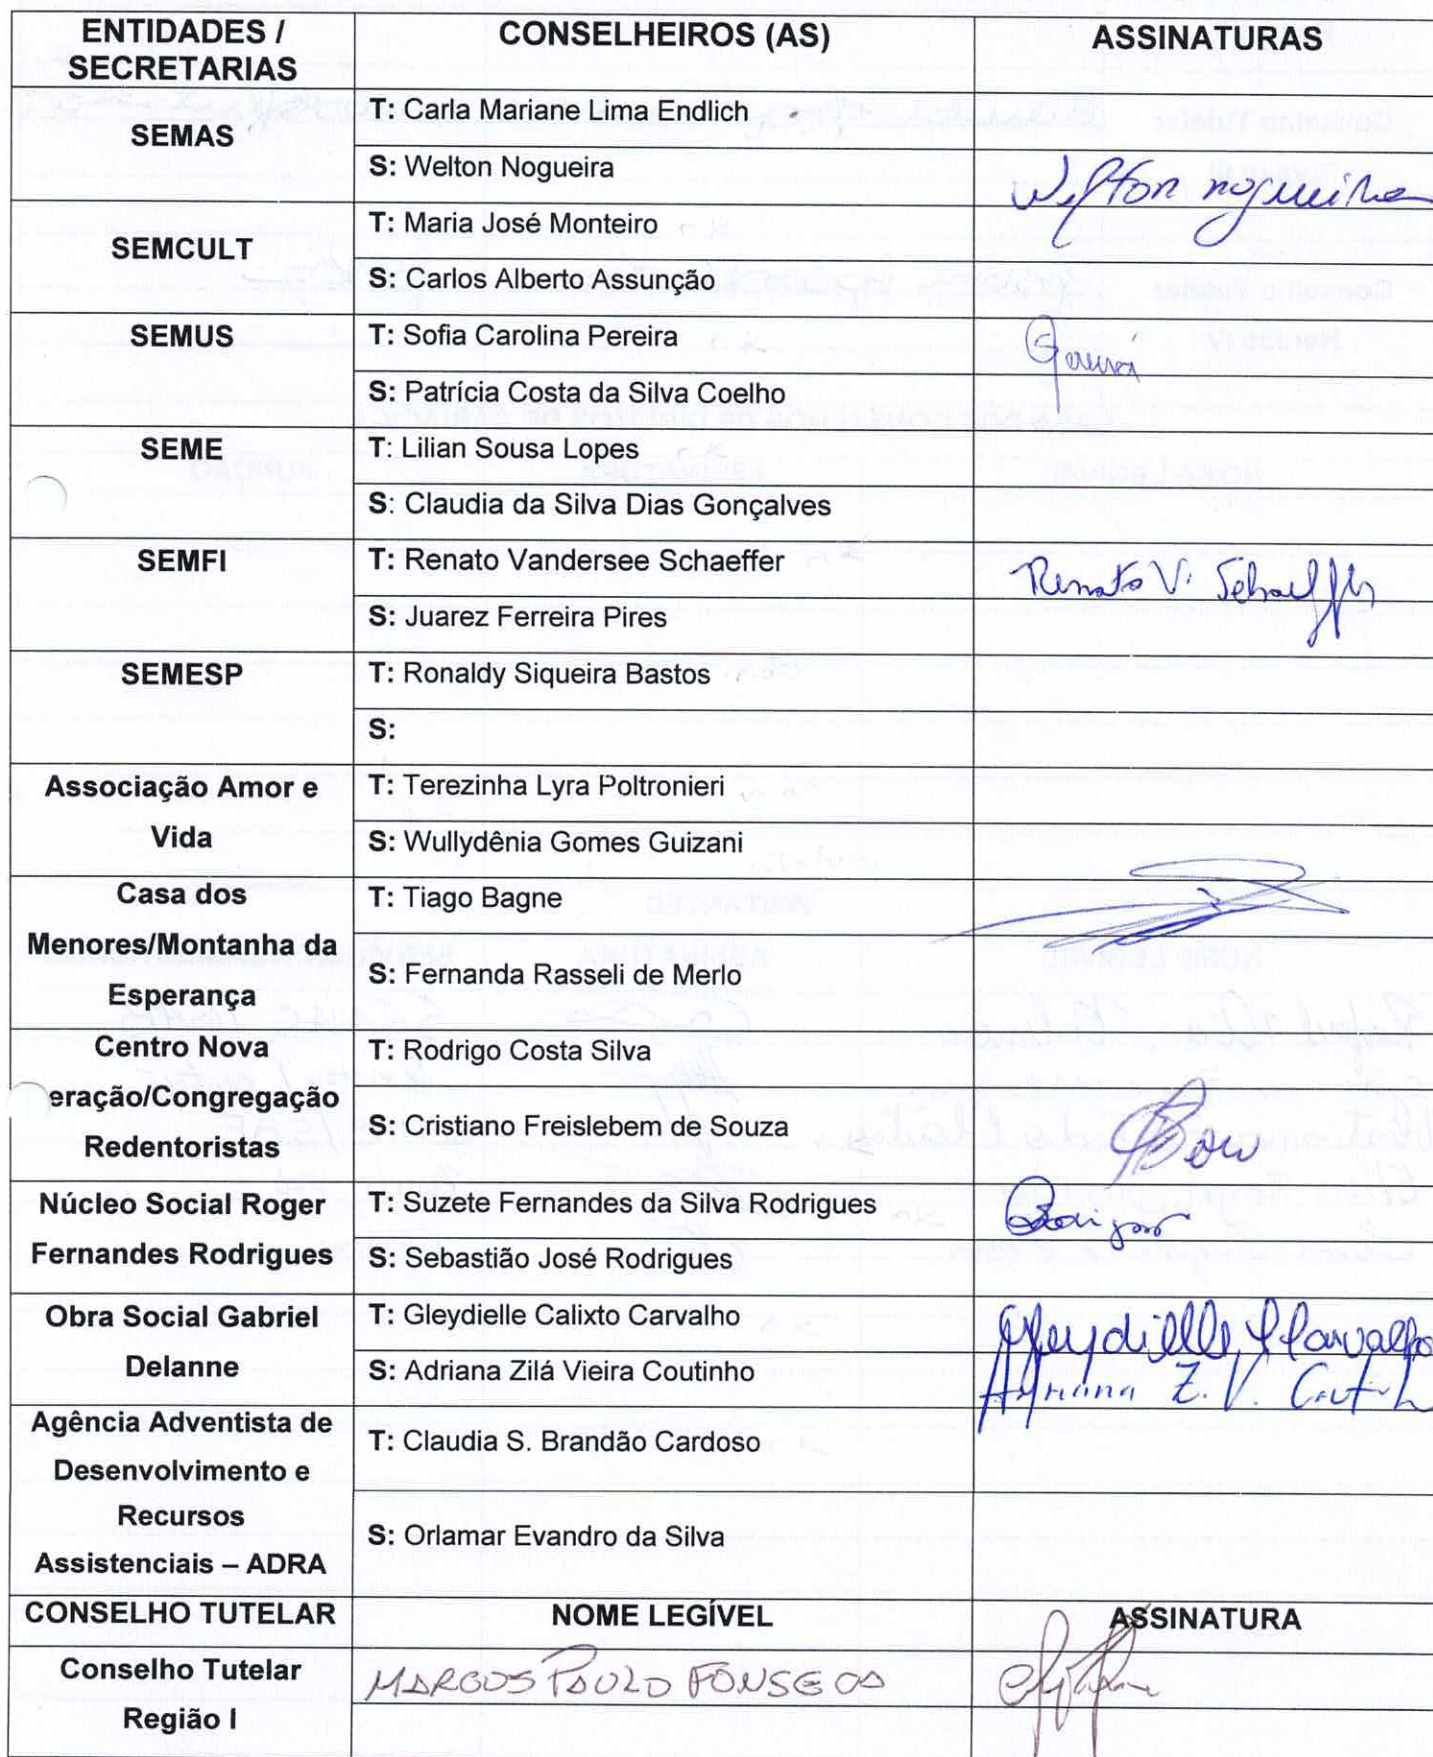 ENTIDADES / SECRETARIAS CONSELHEIROS (AS) ASSINATURAS
SEMAS
T: Carla Mariane Lima Endlich
S: Welton Nogueira Welton nogueira
SEMCULT
T: Maria José Monteiro
S: Carlos Alberto Assunção
SEMUS
T: Sofia Carolina Pereira
S: Patrícia Costa da Silva Coelho
SEME
T: Lilian Sousa Lopes
S: Claudia da Silva Dias Gonçalves
SEMFI
T: Renato Vandersee Schaeffer Renato V. Schaeffer
S: Juarez Ferreira Pires
SEMESP
T: Ronaldy Siqueira Bastos
S:
Associação Amor e
Vida
T: Terezinha Lyra Poltronieri
S: Wullydênia Gomes Guizani
Casa dos
Menores/Montanha da
Esperança
T: Tiago Bagne
S: Fernanda Rasseli de Merlo
Centro Nova
eração/Congregação
Redentoristas
T: Rodrigo Costa Silva
S: Cristiano Freislebem de Souza
Núcleo Social Roger
Fernandes Rodrigues
T: Suzete Fernandes da Silva Rodrigues
S: Sebastião José Rodrigues
Obra Social Gabriel
Delanne
T: Gleydielle Calixto Carvalho Gleydielle C Carvalho
S: Adriana Zilá Vieira Coutinho Adriana Z. V. Coutinho
Agência Adventista de
Desenvolvimento e
Recursos
Assistenciais – ADRA
T: Claudia S. Brandão Cardoso
S: Orlamar Evandro da Silva
CONSELHO TUTELAR NOME LEGÍVEL ASSINATURA
Conselho Tutelar
Região I
MARCOS PAULO FONSECA